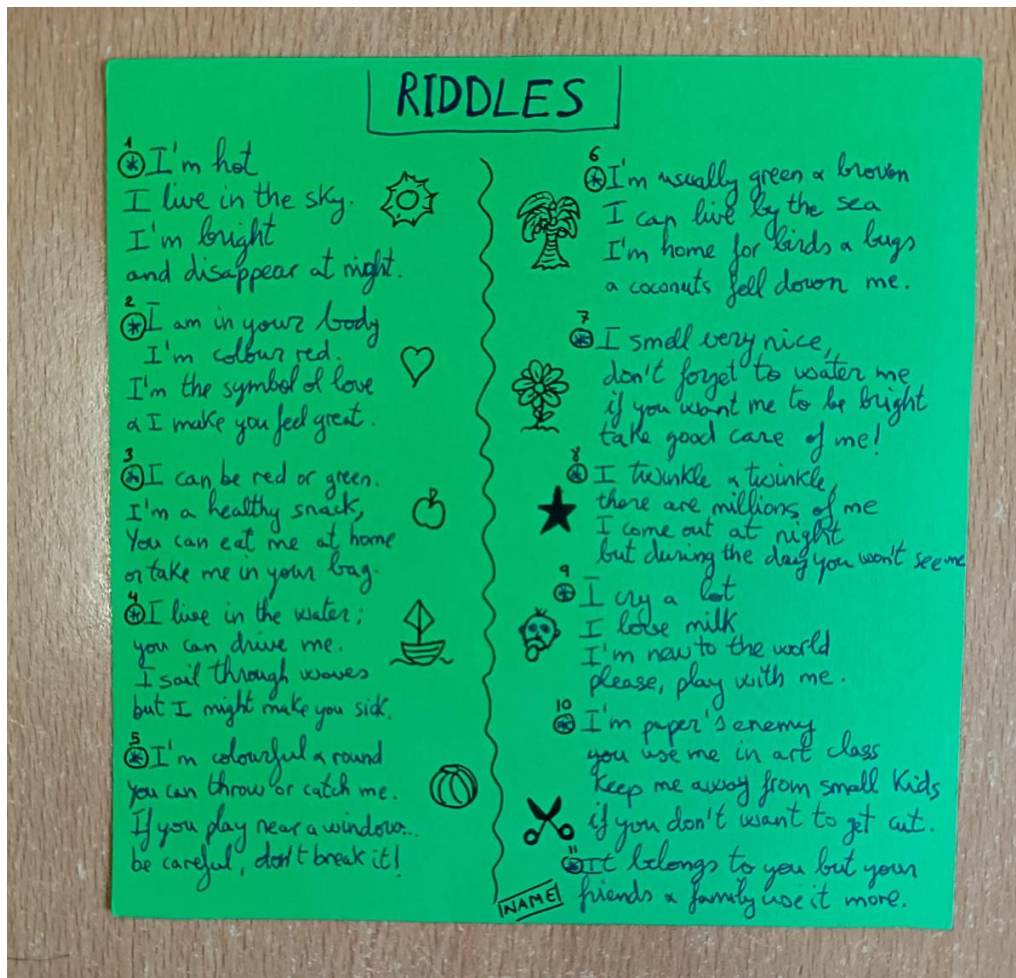 RIDDLES
1
I'm hot
I live in the sky.
I'm bright
and disappear at night.
2
I am in your body
I'm colour red.
I'm the symbol of love
& I make you feel great.
3
I can be red or green.
I'm a healthy snack,
You can eat me at home
or take me in your bag.
4
I live in the water;
you can drive me.
I sail through waves
but I might make you sick.
5
I'm colourful & round
you can throw or catch me.
If you play near a window...
be careful, don't break it!
6
I'm usually green & brown
I can live by the sea
I'm home for birds & bugs
& coconuts fell down me.
7
I smell very nice,
don't forget to water me
if you want me to be bright
take good care of me!
8
I twinkle & twinkle,
there are millions of me
I come out at night
but during the day you won't see me
9
I cry a lot
I love milk
I'm new to the world
please, play with me.
10
I'm paper's enemy
you use me in art class
keep me away from small kids
if you don't want to get cut.
11
It belongs to you but your
friends & family use it more.
NAME